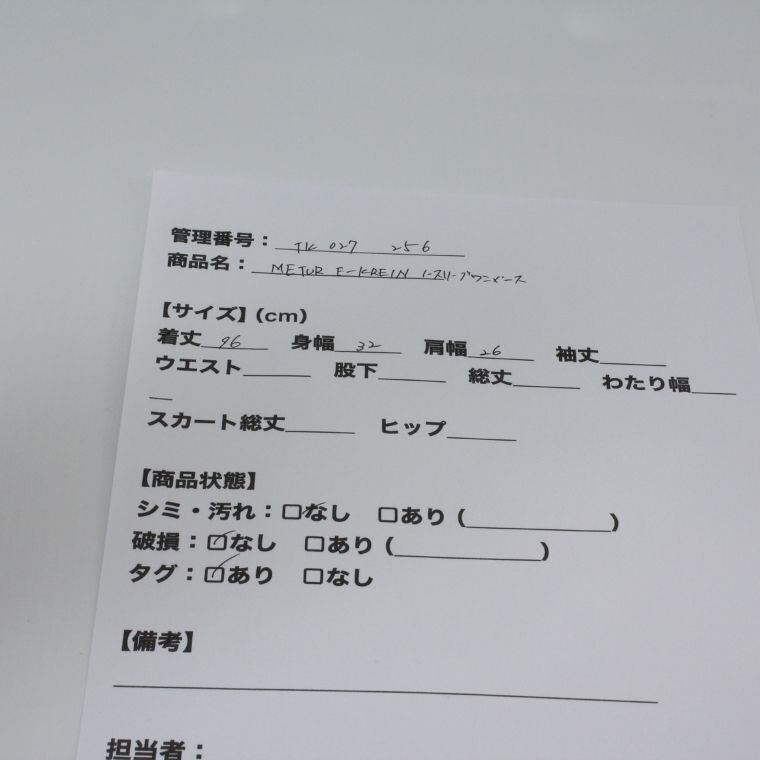 管理番号：TK 027 256
商品名：METUR E-KREIN ノースリーブワンピース
【サイズ】(cm)
着丈 96 身幅 32 肩幅 26 袖丈
ウエスト 股下 総丈 わたり幅
スカート総丈 ヒップ
【商品状態】
シミ・汚れ：☑なし □あり (          )
破損：☑なし □あり (          )
タグ：☑あり □なし
【備考】
担当者：